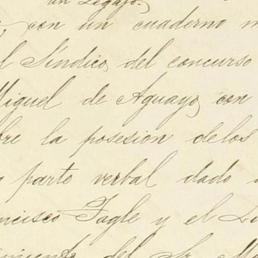 un Legajo.
con un cuaderno
Síndico del concurso
Miguel de Aguayo con
la posesion de los
parte verbal dado
Fagle y el
del Sr.